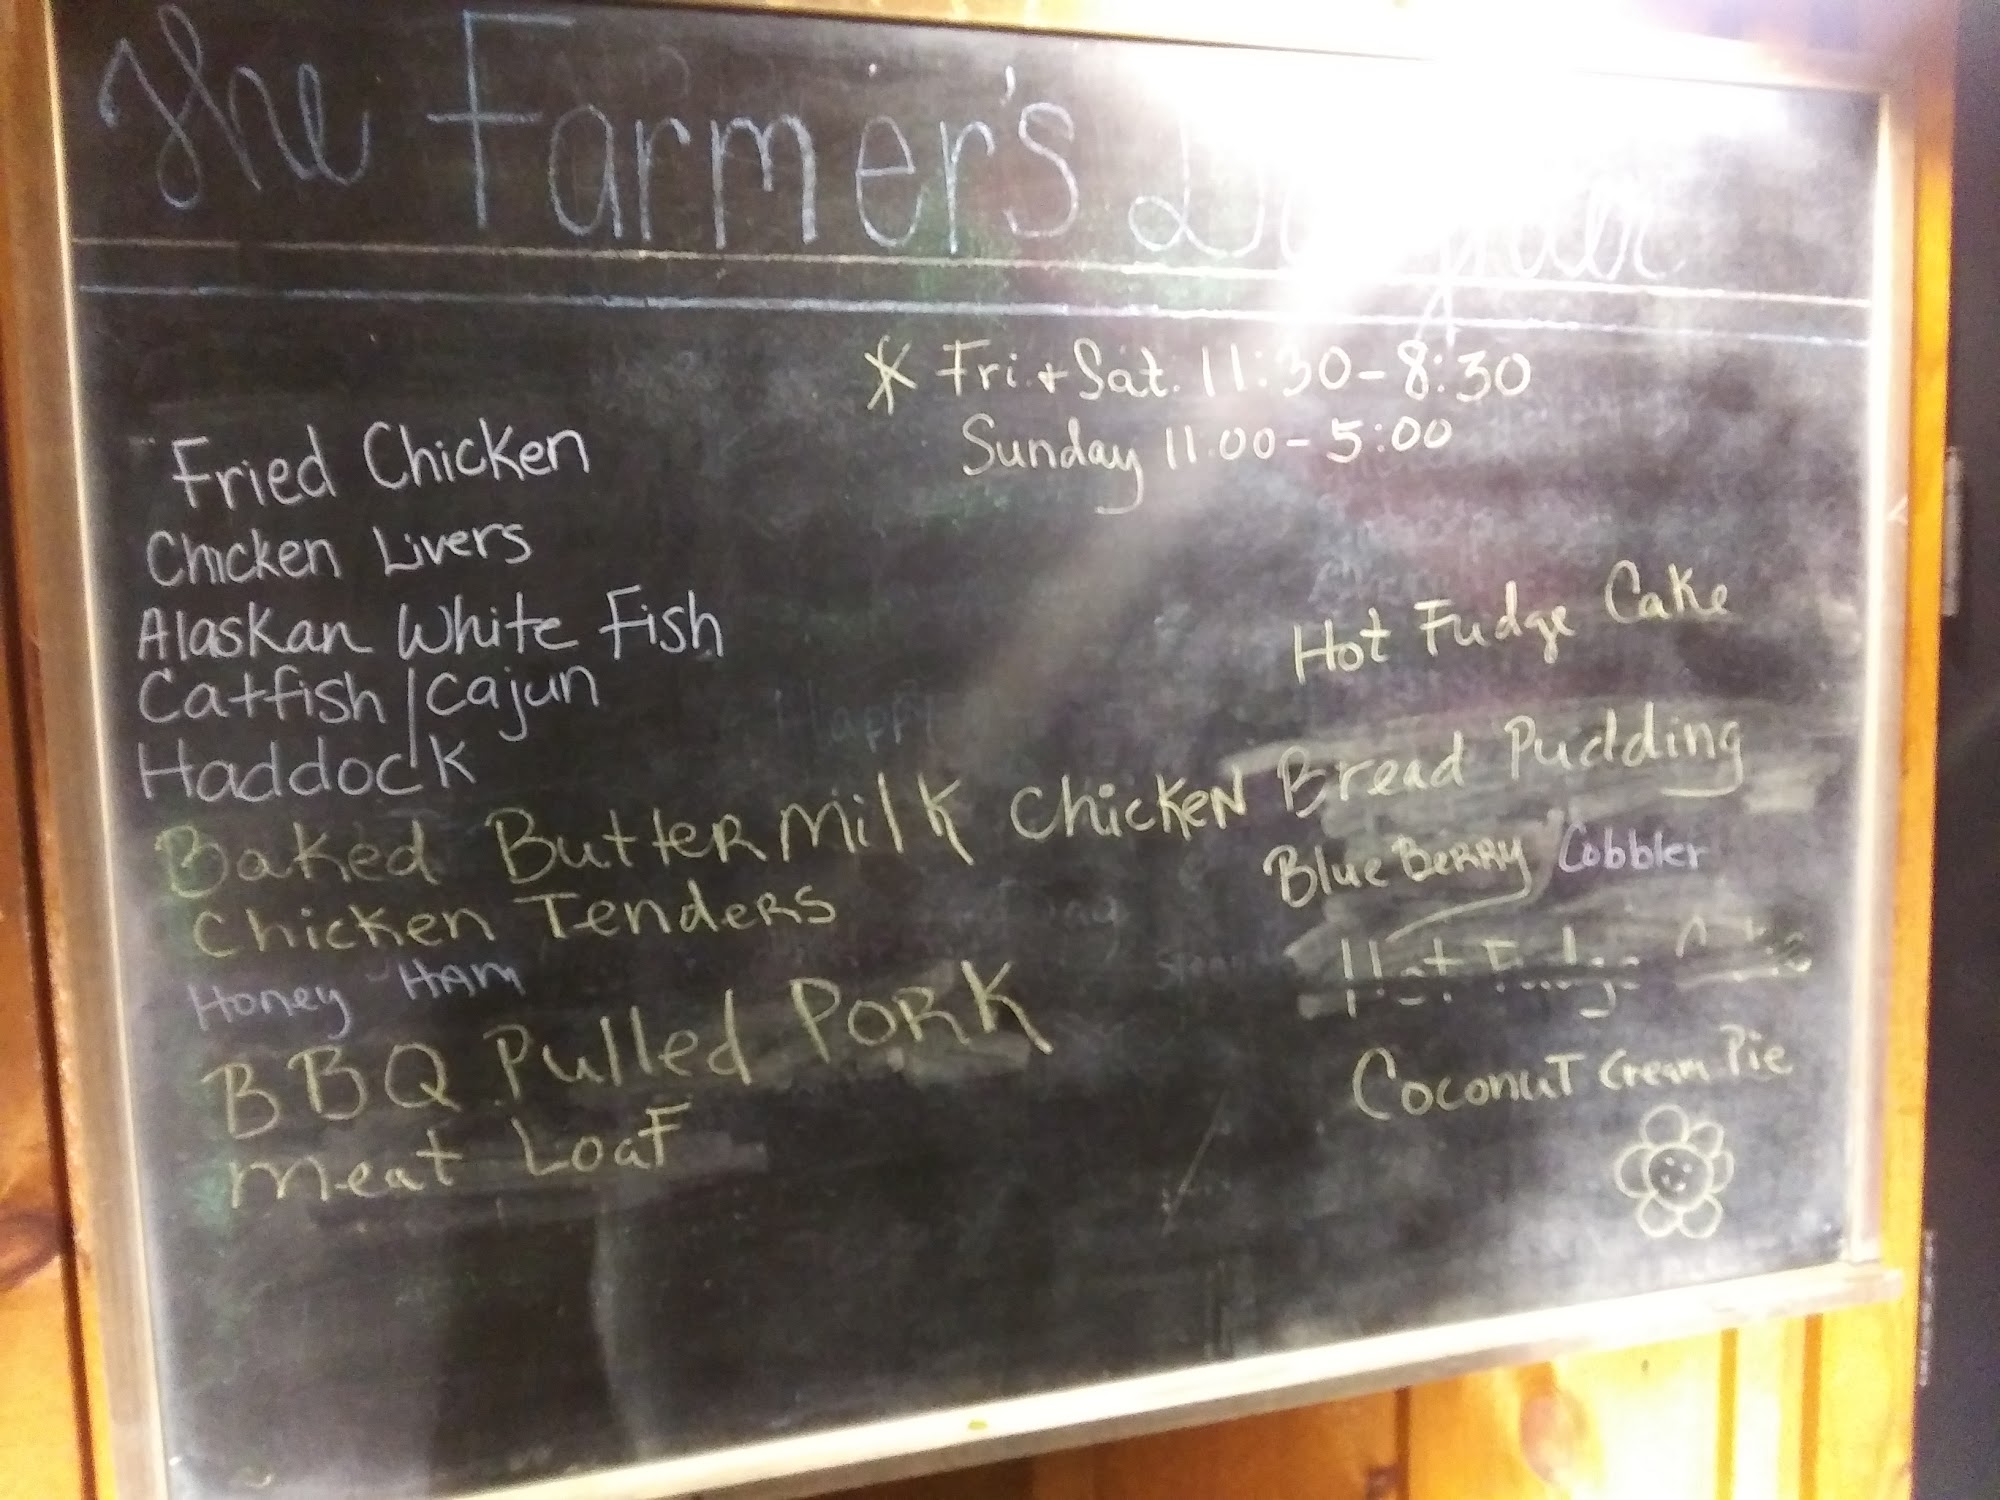 The Farmer's
* Fri. + Sat. 11:30-8:30
Sunday 11:00-5:00
Fried Chicken
Chicken Livers
Alaskan White Fish
Catfish/Cajun
Haddock
Baked Buttermilk Chicken
Chicken Tenders
Honey HAM
BBQ Pulled PORK
Meat Loaf
Hot Fudge Cake
Bread Pudding
BlueBERRY Cobbler
Coconut Cream Pie